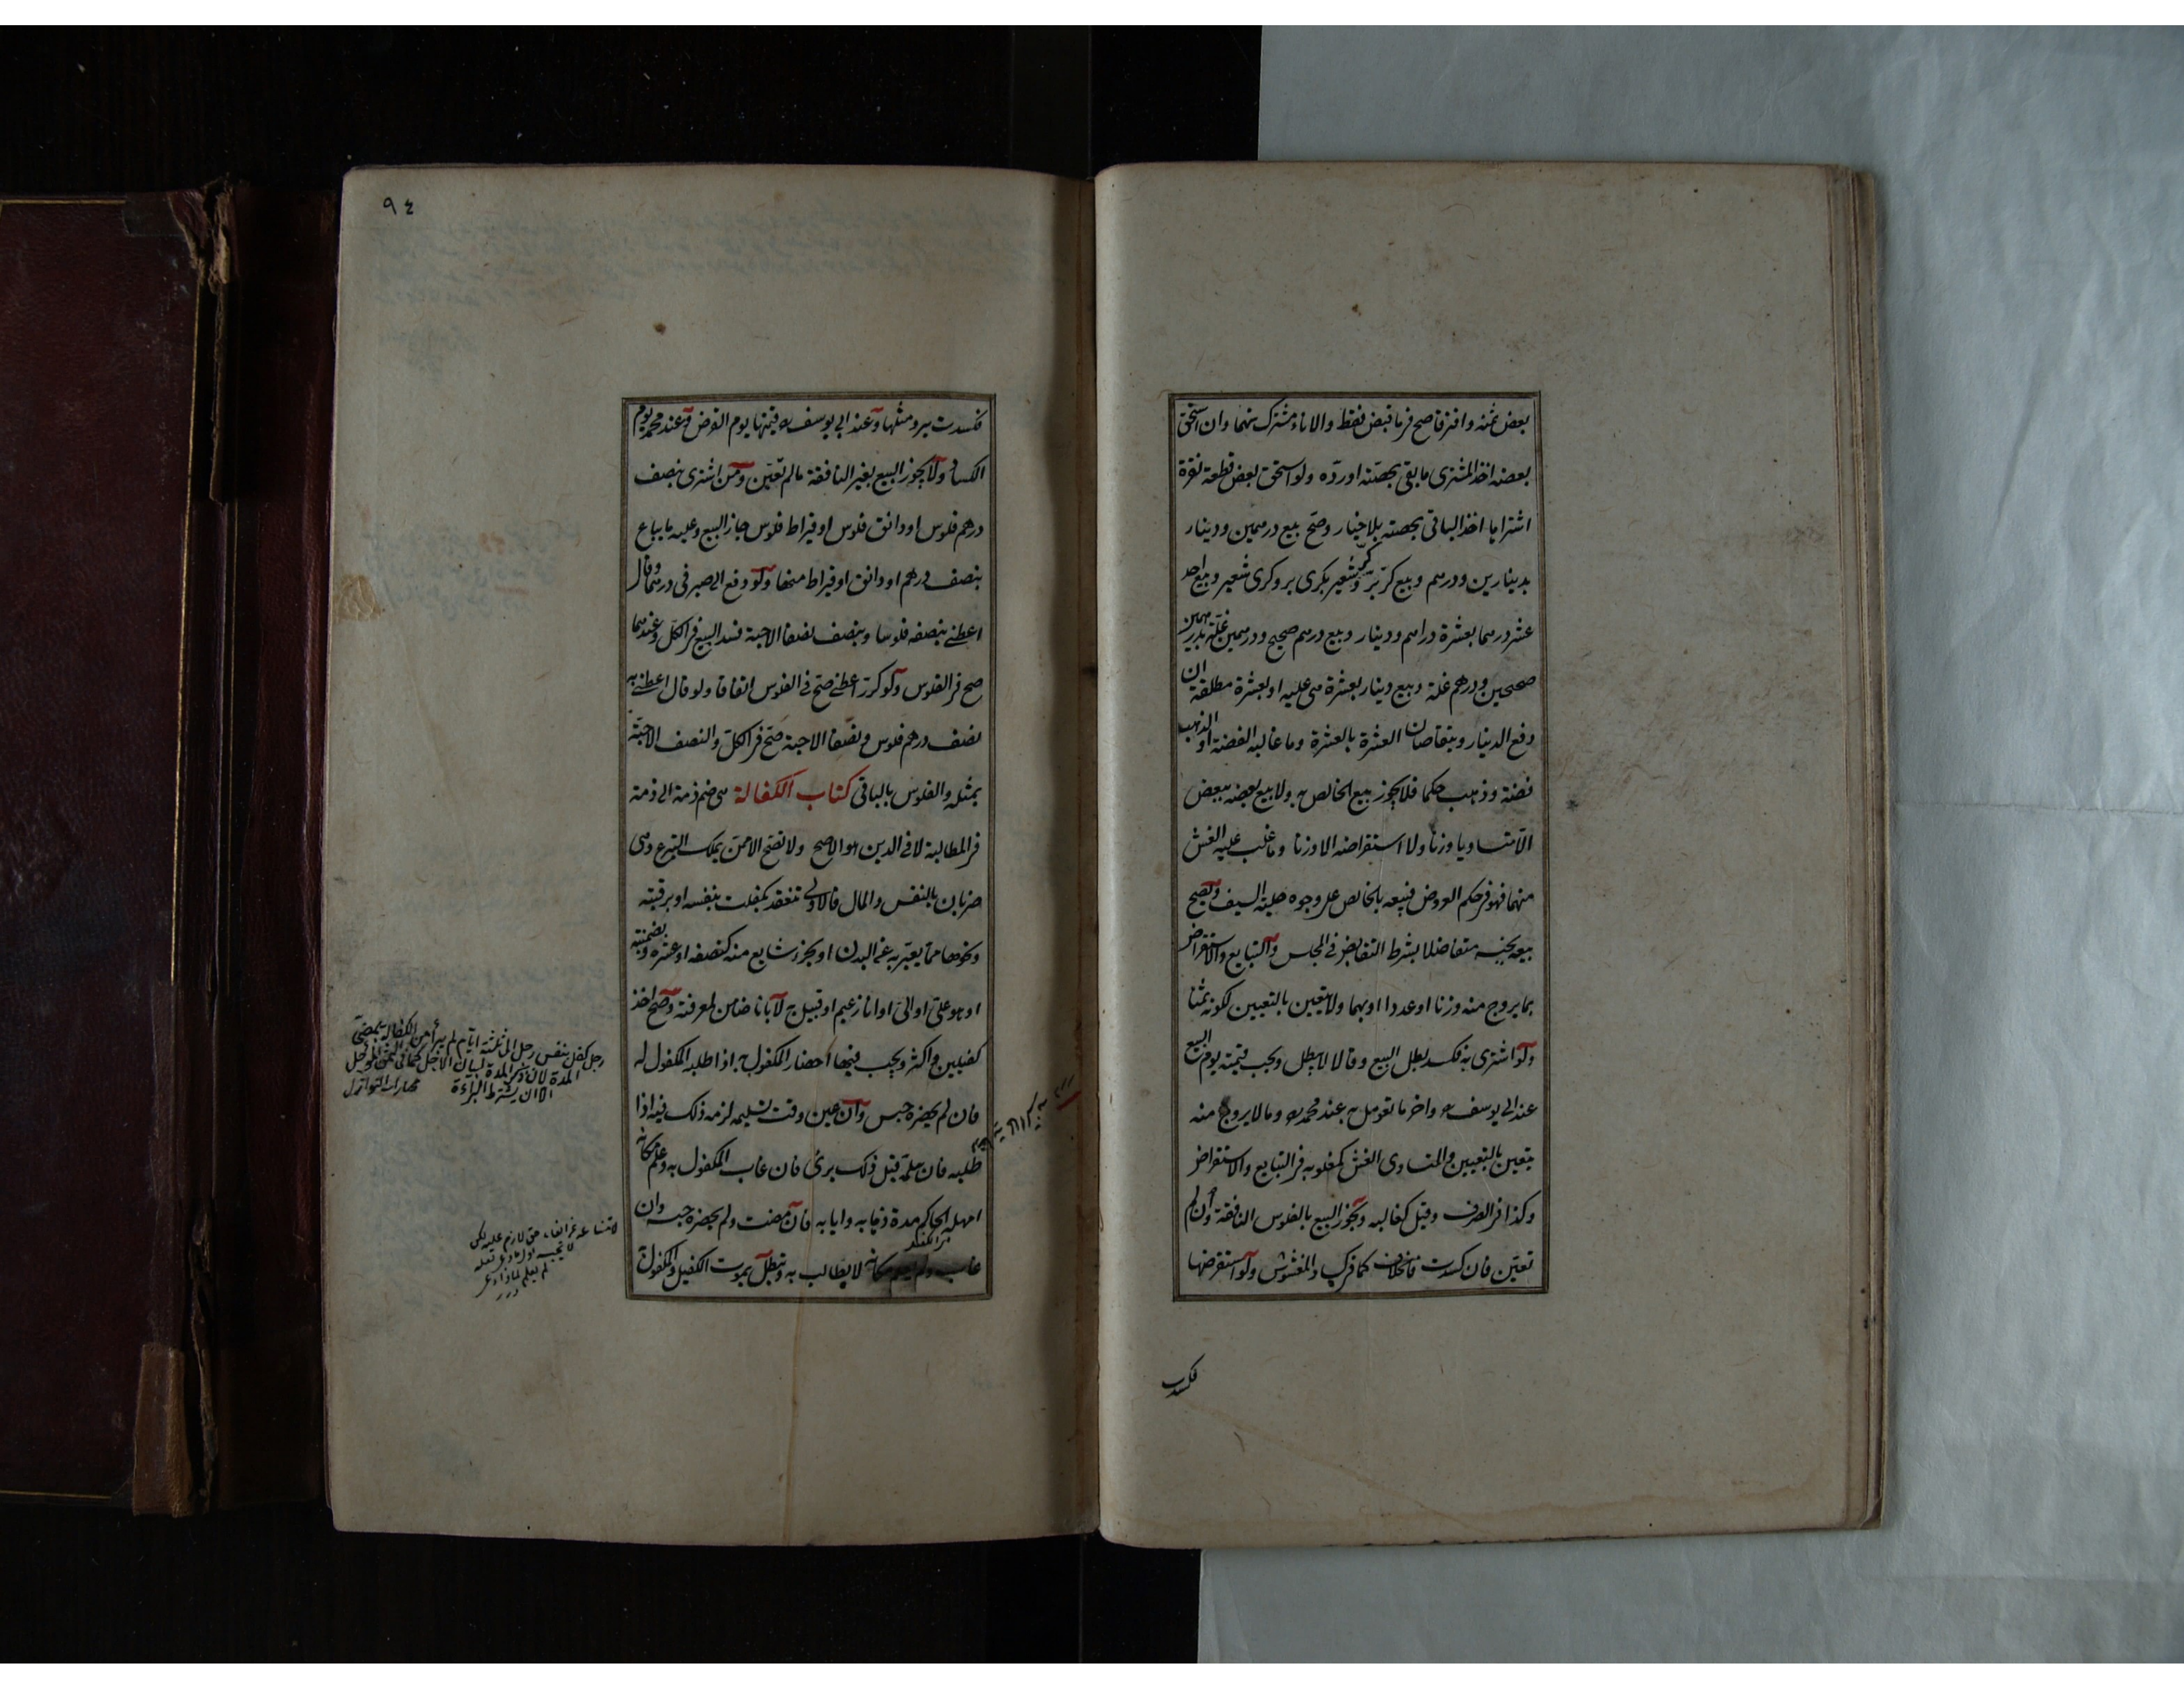 بعض ثمنه وافترقا صح فيما قبض فقط والاناء مشترك بينهما وان استحق
بعضه اخذ المشترى ما بقى بحصته او رده ولو استحق بعض قطعة نقرة
اشتراها اخذ الباقى بحصته بلا خيار وصح بيع درهمين ودينار
بدينارين ودرهم وبيع كر بر وكر شعير بكرى بر وكرى شعير وبيع احد
عشر درهما بعشرة دراهم ودينار وبيع درهم صحيح ودرهمين غلة بدرهمين
صحيحين ودرهم غلة وبيع دينار بعشرة هى عليه او بعشرة مطلقة ان
دفع الدينار ويتقاصان العشرة بالعشرة وما غالبه الفضة او الذهب
فضة وذهب حكما فلا يجوز بيع الخالص به ولا بيع بعضه ببعض
الا متساويا وزنا ولا استقراضه الا وزنا وما غلب عليه الغش
منهما فهو فى حكم العروض فبيعه بالخالص على وجوه حلية السيف ويصح
بيعه بجنسه متفاضلا بشرط التقابض فى المجلس والتبايع والاستقراض
بما يروج منه وزنا او عددا او بهما ولا يتعين بالتعيين لكونه ثمنا
ولو اشترى به فكسد بطل البيع وقالا لا يبطل ويجب قيمته يوم البيع
عند ابى يوسف واخر ما تعومل به عند محمد وما لا يروج منه
يتعين بالتعيين والمتساوى الغش كمغلوبه فى التبايع والاستقراض
وكذا فى الصرف وقيل كغالبه ويجوز البيع بالفلوس النافقة وان لم
تعين فان كسدت فالخلاف كما فى كساد المغشوش ولو استقرضها
فكسدت
٩٤
فكسدت يرد مثلها وعند ابى يوسف قيمتها يوم القرض وعند محمد يوم
الكساد ولا يجوز البيع بغير النافقة ما لم تعين ومن اشترى بنصف
درهم فلوس او دانق فلوس او قيراط فلوس جاز البيع وعليه ما يباع
بنصف درهم او دانق او قيراط منها ولو دفع الى صيرفى درهما وقال
اعطنى بنصفه فلوسا وبنصف نصفا الا حبة فسد البيع فى الكل وعندهما
صح فى الفلوس ولو كرر اعطنى صح فى الفلوس اتفاقا ولو قال اعطنى به
نصف درهم فلوس ونصفا الا حبة صح فى الكل والنصف الا حبة
بمثله والفلوس بالباقى كتاب الكفالة هى ضم ذمة الى ذمة
فى المطالبة لا فى الدين هو الاصح ولا تصح الا ممن يملك التبرع وهى
ضربان بالنفس والمال فالاولى تنعقد بكفلت بنفسه او برقبته
ونحوها مما يعبر به عن البدن او بجزء شايع منه كنصفه او عشره وبضمنته
او هو على او الى او انا زعيم او قبيل به لا بانا ضامن لمعرفته وصح اخذ
كفيلين واكثر ويجب فيها احضار المكفول به اذا طلبه المكفول له
فان لم يحضره حبس وان عين وقت تسليمه لزمه ذلك فيه اذا
طلبه فان سلمه قبل ذلك برئ فان غاب المكفول به وعلم مكانه
امهله الحاكم مدة ذهابه وايابه فان مضت ولم يحضره حبسه وان
غاب ولم يعلم مكانه لا يطالب به وتبطل بموت الكفيل والمكفول به
رجل كفل بنفس رجل الى ثلثة ايام لم يبرأ من الكفالة بمضى
المدة لان ذكر المدة لبيان الاجل كما فى الثمن المؤجل
الا ان يشترط البراءة